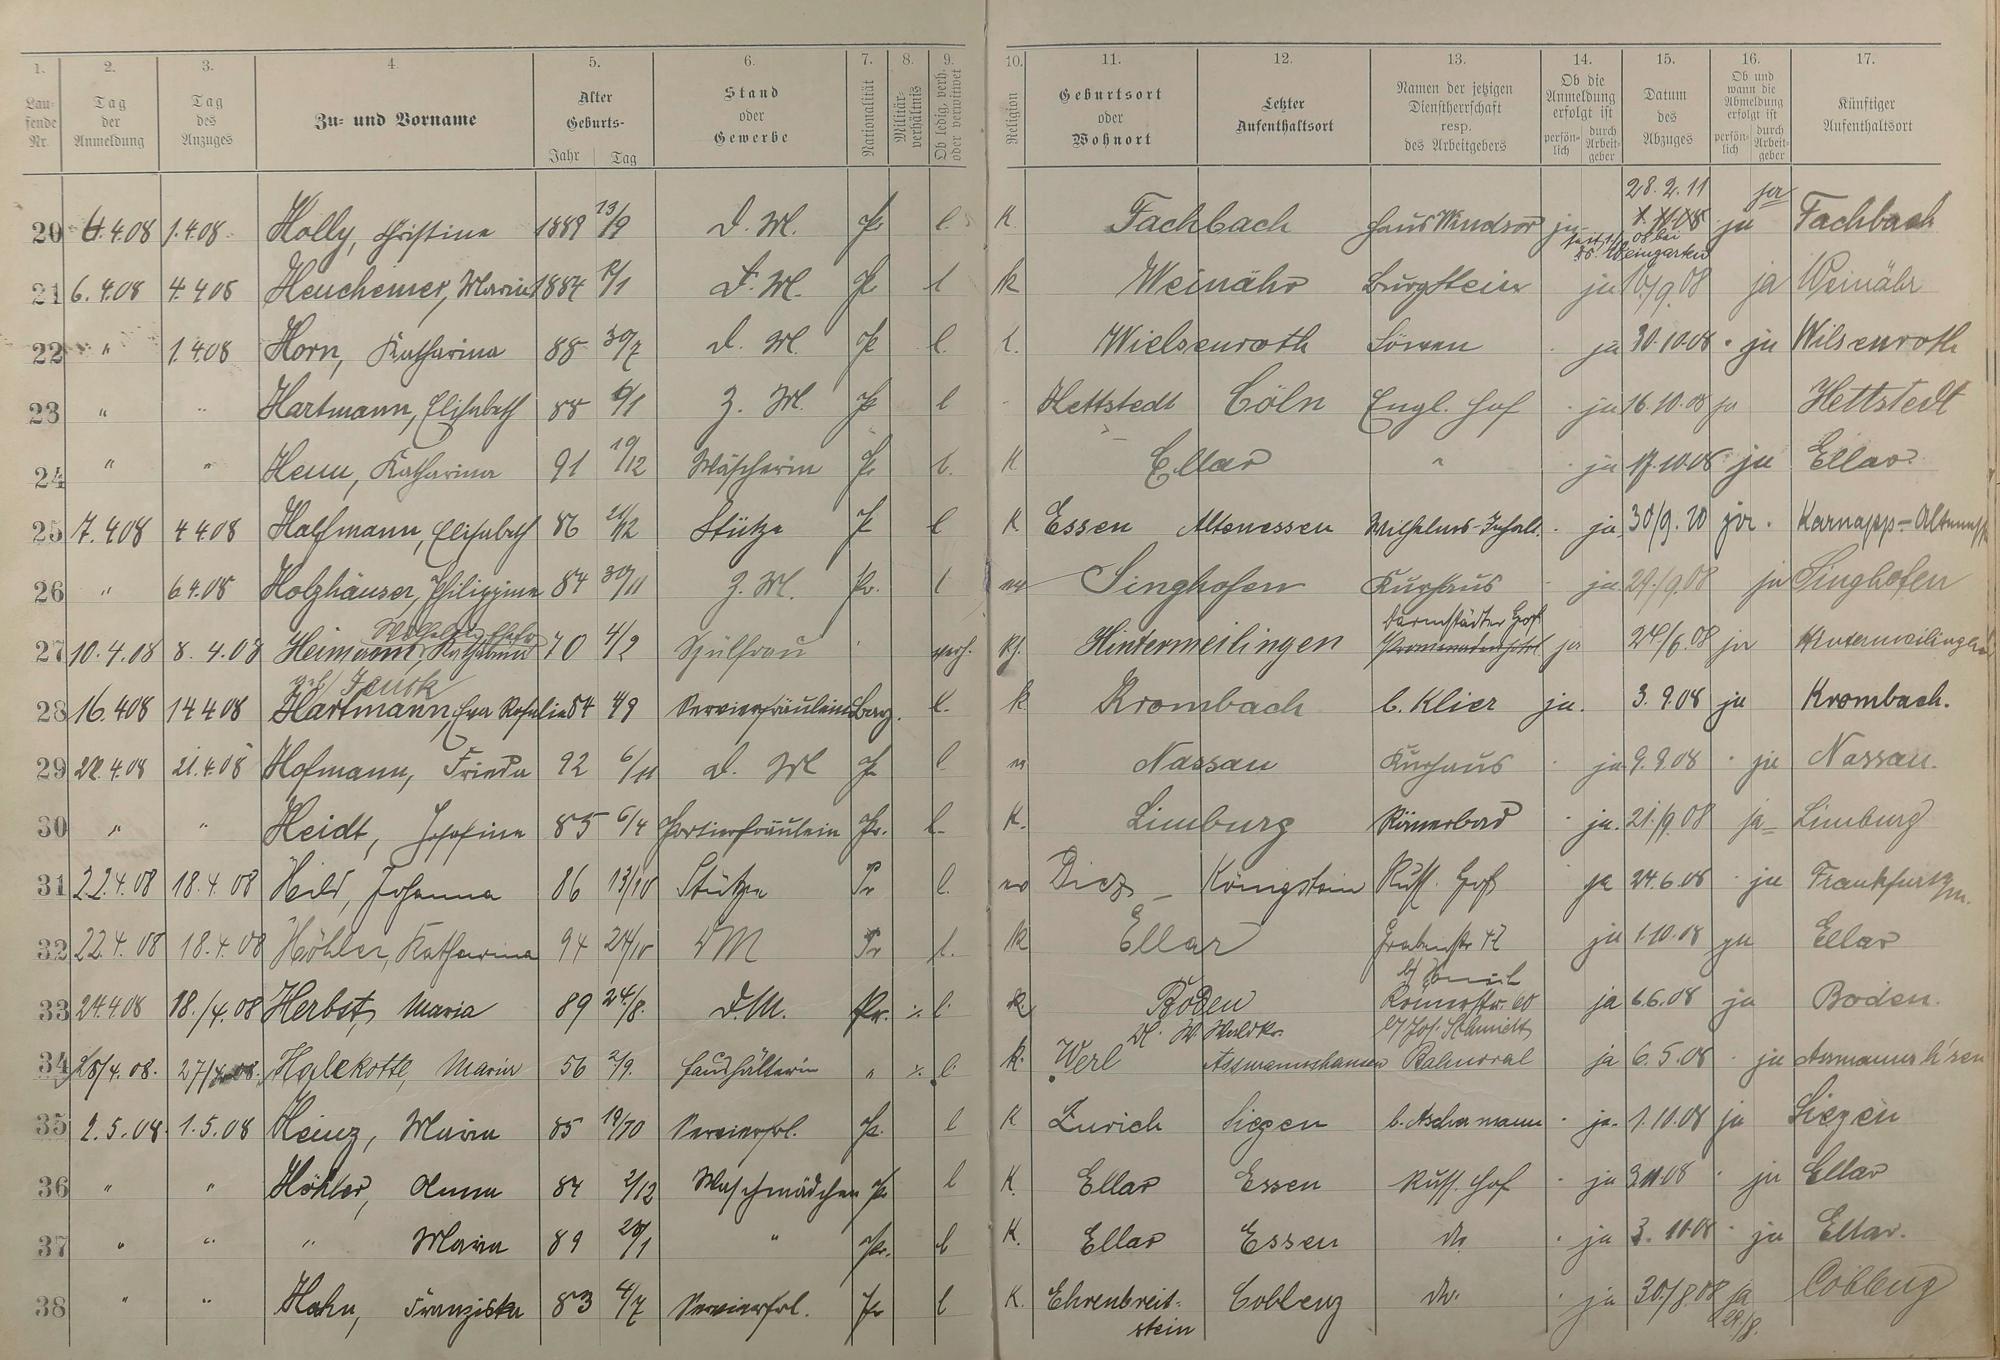 1. 2. 3. 4. 5. 6. 7. 8. 9. 10. 11. 12. 13. 14. 15. 16. 17.
Laufende Nr. Tag der Anmeldung Tag des Anzuges Zu- und Vorname Alter Geburts- Jahr Tag Stand oder Gewerbe Nationalität Militärverhältnis Ob ledig, verh. oder verwitwet Religion Geburtsort oder Wohnort Letzter Aufenthaltsort Namen der jetzigen Dienstherrschaft resp. des Arbeitgebers Ob die Anmeldung erfolgt ist persönlich durch Arbeitgeber Datum des Abzuges Ob und wann die Abmeldung erfolgt ist persönlich durch Arbeitgeber Künftiger Aufenthaltsort
28.2.11 ja
20 6.4.08 1.4.08 Holly, Christine 1889 13/9 D. M. Pr l. K Fachbach Haus Windsor ja ja Fachbach
08 bei Weingarten
21 6.4.08 4.4.08 Heuchemer, Maria 1884 D. M. Pr l K Weinähr Burgstein ja 16/9.08 ja Weinähr
22 " 1.4.08 Horn, Katharina 88 30/7 D. M. Pr l. Wielsenroth Löwen ja 30.10.08 ja Wilsenroth
23 " " Hartmann, Elisabeth 88 6/1 Z. M. Pr l Hettstedt Cöln Engl. Hof ja 16.10.08 ja Hettstedt
24 " " Henn, Katharina 91 19/12 Wäscherin Pr l. K Ellar " ja 17.10.08 ja Ellar
25 7.4.08 4.4.08 Halfmann, Elisabeth 86 21/12 Stütze Pr l K Essen Altenessen Wilhelms- ja 30/9. ja Karnapp-
26 " 6.4.08 Holzhäuser, Philippine 84 30/11 Z. M. Pr. l Singhofen Kurhaus ja 29./9.08 ja Singhofen
Darmstädter Hof
27 10.4.08 8.4.08 Heimann, Katharina 70 4/2 Spülfrau verh. K. Hintermeilingen ja 24/6.08 ja Hintermeilingen
geb.
28 16.4.08 14.4.08 Hartmann, Eva Rosalie 84 4/9 Servierfräulein l. k Krombach b. Klier ja. 3.9.08 ja Krombach.
29 22.4.08 21.4.08 Hofmann, Frieda 92 6/11 D. M Pr l Nassau Kurhaus ja 9.9.08 ja Nassau.
30 " " Heidt, Josefine 85 6/4 Portierfräulein Pr. l. K. Limburg Römerbad ja. 21./9.08 ja Limburg
31 22.4.08 18.4.08 Heil, Johanna 86 13/10 Stütze Pr l. Diez Königstein Russ. Hof ja 24.6.08 ja Frankfurt a/m.
32 22.4.08 18.4.08 Höhler, Katharina 94 24/10 DM Pr l. K Ellar Grabenstr 42 ja 1.10.08 ja Ellar
33 24.4.08 18./4.08 Herbst, Maria 89 24./8. D.M. Pr. ./. l. k. Boden Römerstr. 60 ja 6.6.08 ja Boden.
b/ Jos. Schmidt
34 28/4.08. 27/4.08. Halekotte, Maria 56 2/9. Haushälterin " ./. l. k. Werl Assmannshausen Balmoral ja 6.5.08 ja Assmannsh'sen
35 2.5.08. 1.5.08 Heinz, Maria 85 19/10 Servierfrl. Pr. l K Zurich Siegen ja. 1.10.08 ja Siegen
36 " " Höhler, Anna 84 2/12 Waschmädchen Pr l K. Ellar Essen Russ. Hof ja 3.11.08 ja Ellar
37 " " " Maria 89 20/1 " Pr. l K. Ellar Essen do. ja 3.11.08 ja Ellar.
38 " " Hahn, Franziska 83 4/7 Servierfrl. Pr l K. Ehrenbreit- Coblenz do. ja 30/8.08 ja Coblenz
stein 29/8.